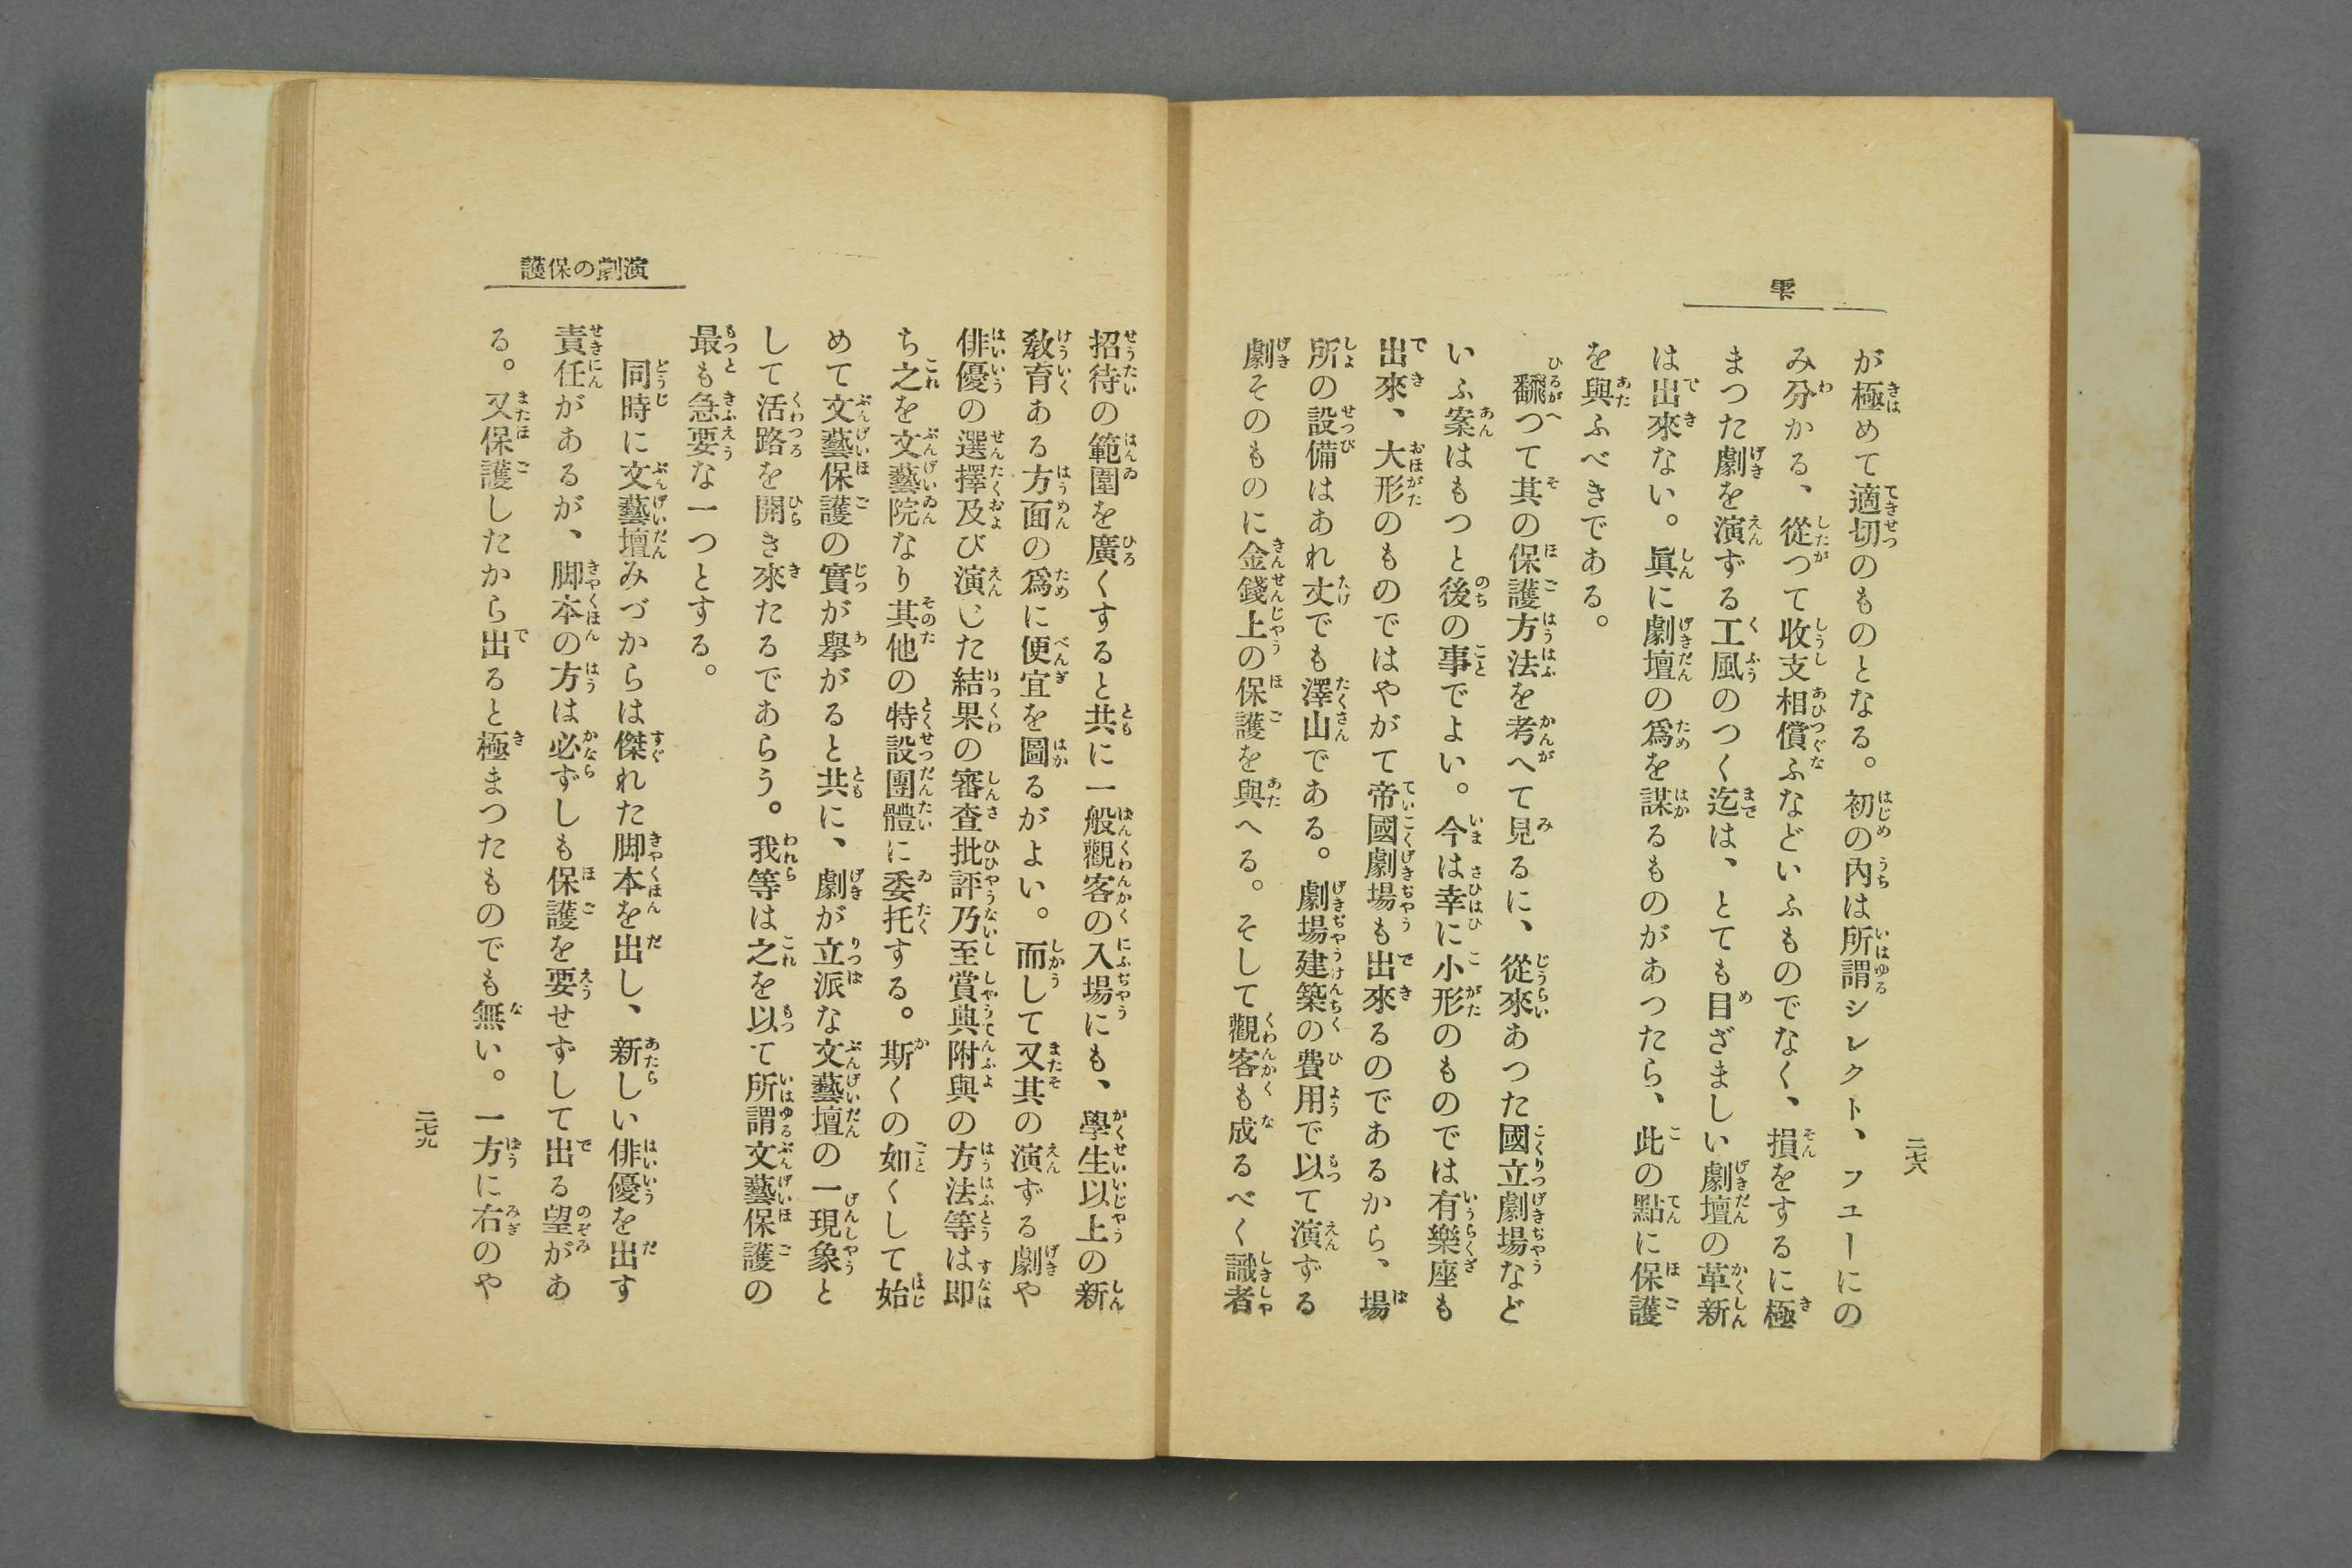 雫
二七八
が極めて適切のものとなる。初の內は所謂シレクト、フユーにの
み分かる、從つて收支相償ふなどいふものでなく、損をするに極
まつた劇を演ずる工風のつく迄は、とても目ざましい劇壇の革新
は出來ない。眞に劇壇の爲を謀るものがあつたら、此の點に保護
を與ふべきである。
飜つて其の保護方法を考へて見るに、從來あつた國立劇場など
いふ案はもつと後の事でよい。今は幸に小形のものでは有樂座も
出來、大形のものではやがて帝國劇場も出來るのであるから、場
所の設備はあれ丈でも澤山である。劇場建築の費用で以て演ずる
劇そのものに金錢上の保護を與へる。そして觀客も成るべく識者
演劇の保護
招待の範圍を廣くすると共に一般觀客の入場にも、學生以上の新
敎育ある方面の爲に便宜を圖るがよい。而して又其の演ずる劇や
俳優の選擇及び演じた結果の審査批評乃至賞典附與の方法等は即
ち之を文藝院なり其他の特設團體に委托する。斯くの如くして始
めて文藝保護の實が擧がると共に、劇が立派な文藝壇の一現象と
して活路を開き來たるであらう。我等は之を以て所謂文藝保護の
最も急要な一つとする。
同時に文藝壇みづからは傑れた脚本を出し、新しい俳優を出す
責任があるが、脚本の方は必ずしも保護を要せずして出る望があ
る。又保護したから出ると極まつたものでも無い。一方に右のや
二七九